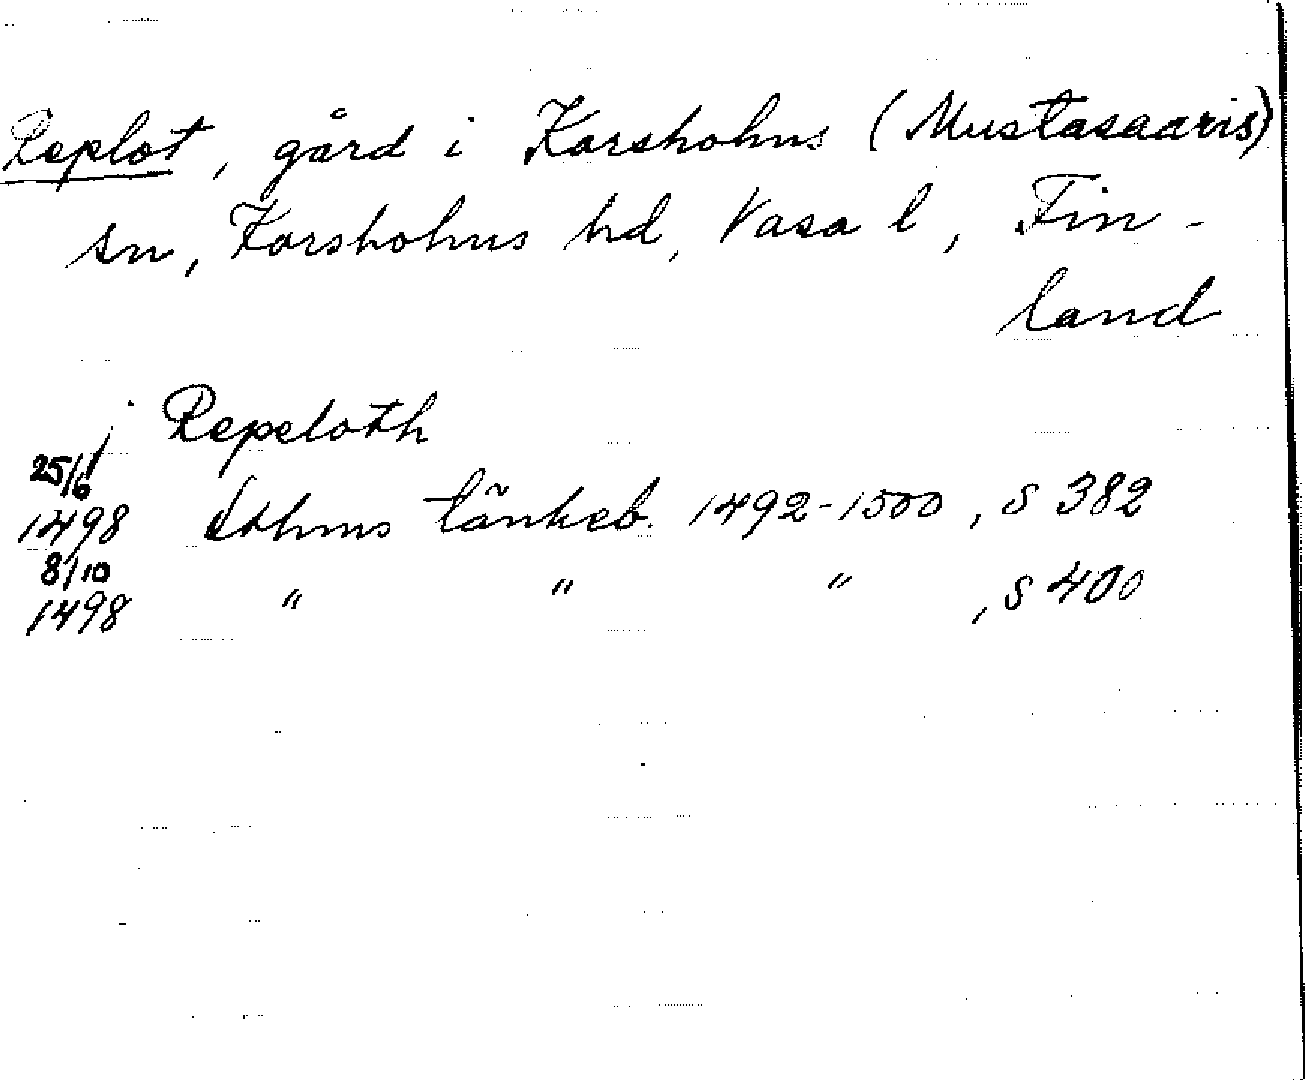 Replot, gård i Korsholms (Mustasaaris)
sn, Korsholms hd, Vasa l, Fin-
land
i Repeloth
25/6
1498 Sthms tänkeb. 1492-1500, s 382
8/10
1498 " " " , s 400